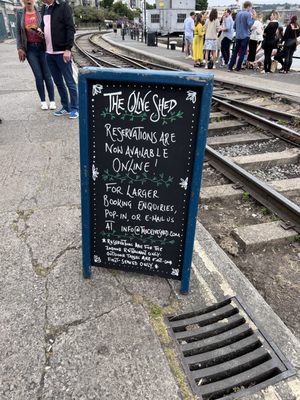 THE OLIVE SHED
RESERVATIONS ARE
NOW AVAILABLE
ONLINE!
FOR LARGER
BOOKING ENQUIRIES,
POP-IN, OR E-MAIL US
AT INFO@THEOLIVESHED.COM
* RESERVATIONS ARE FOR THE
INDOOR RESTAURANT ONLY.
OUTDOOR TABLES ARE FIRST-COME
FIRST-SERVED ONLY *